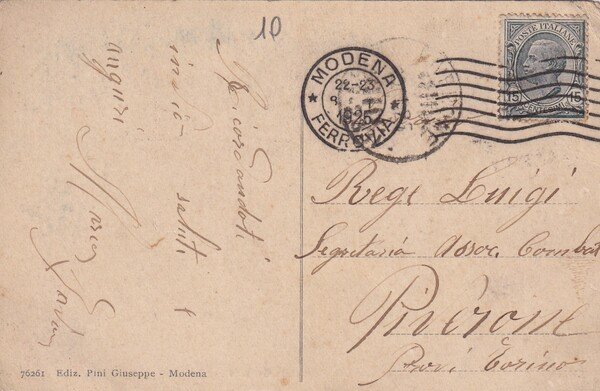 10
Ricordandoti
invio saluti e
auguri
Maria
MODENA
22-23
1925
FERROVIA
POSTE ITALIANE
15 15
Rege Luigi
Segretario Assoc. Combat
Piverone
Prov. Torino
76261 Ediz. Pini Giuseppe - Modena